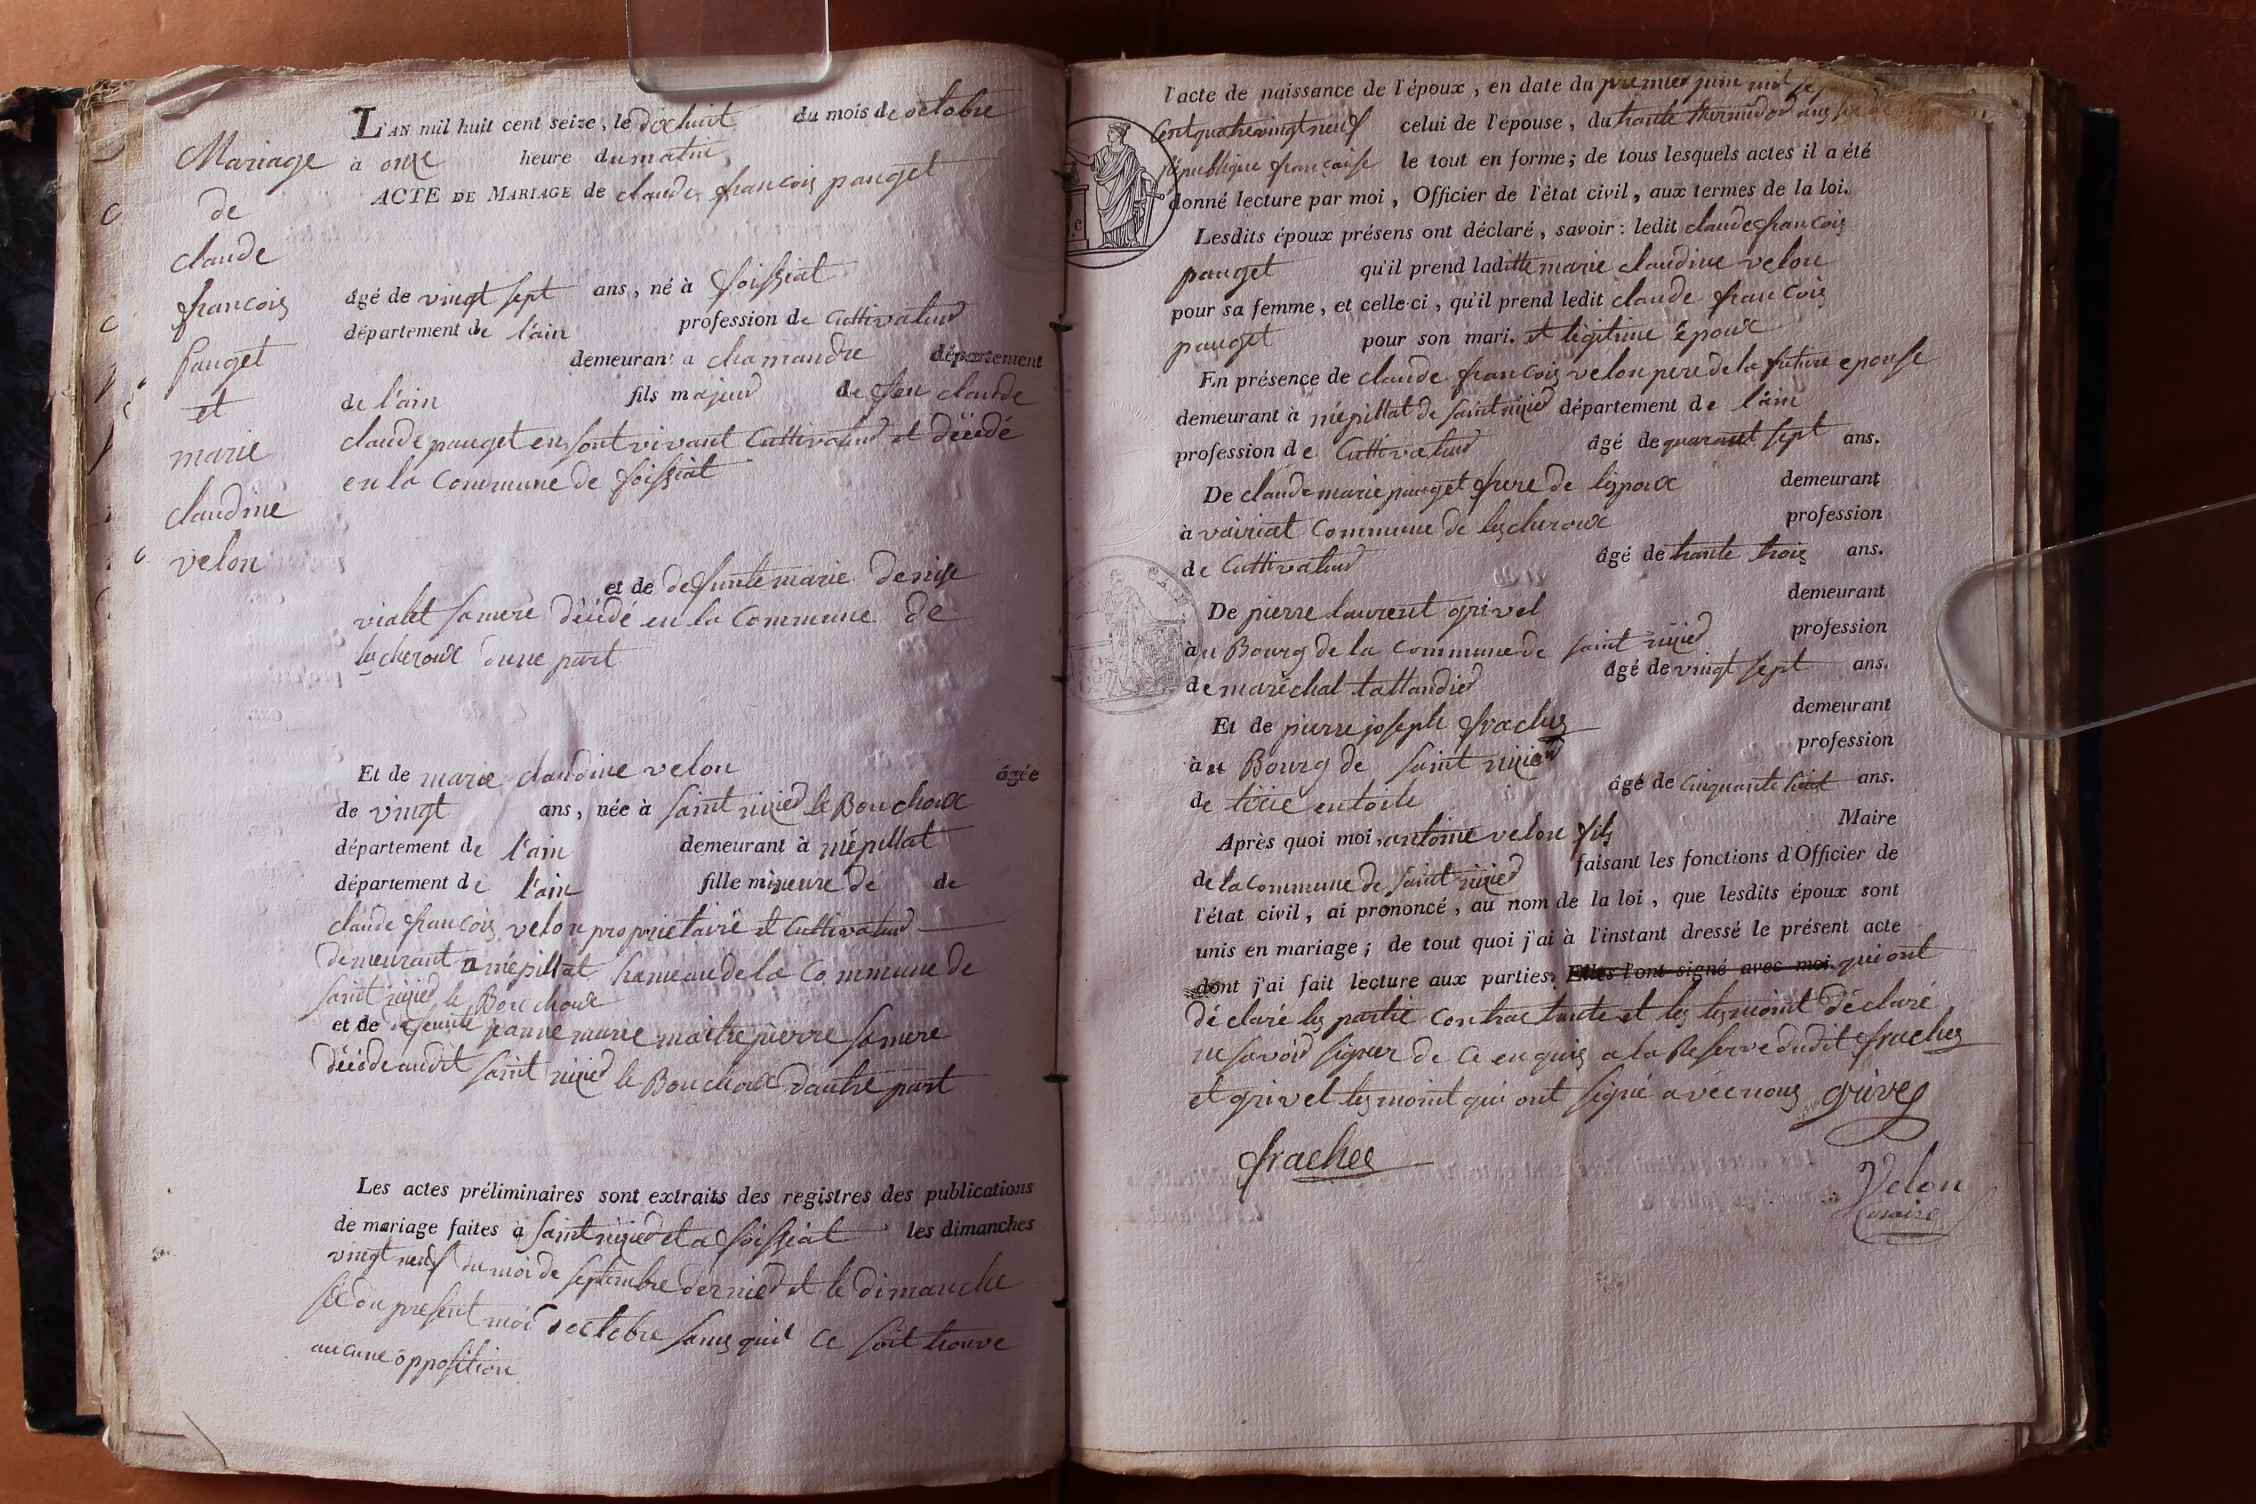 Mariage
de
claude
francois
pauget
et
marie
claudine
velon
L'AN mil huit cent seize, le dixhuit du mois de octobre
à onze heure du matin
ACTE DE MARIAGE de claude francois pauget
âgé de vingt sept ans, né à foissiat
département de l'ain profession de Cultivateur
demeurant a chamandre département
de l'ain fils majeur de feu claude
claude pauget en sont vivant Cultivateur et décédé
en la Commune de foissiat
et de defunte marie denise
violet sa mere décédé en la Commune de
lescheroux d'une part
Et de marie claudine velon âgée
de vingt ans, née à saint nizier le Bouchoux
département de l'ain demeurant à mépillat
département de l'ain fille mineure de de
claude francois velon proprietaire et Cultivateur
demeurant a mépillat hameau de la Commune de
saint nizier le Bouchoux
et de defunte jeanne marie maitrepierre sa mere
décédé audit saint nizier le Bouchoux d'autre part
Les actes préliminaires sont extraits des registres des publications
de mariage faites à saint nizier et a foissiat les dimanches
vingt neuf du moi de septembre dernier et le dimanche
six du present moi d'octobre sans quil ce soit trouve
aucune opposition
l'acte de naissance de l'époux, en date du premier juin mil
Cent quatre vingt neuf celui de l'épouse, du trante thermidor ans
république française le tout en forme; de tous lesquels actes il a été
donné lecture par moi, Officier de l'état civil, aux termes de la loi.
Lesdits époux présens ont déclaré, savoir: ledit claude francois
pauget qu'il prend laditte marie claudine velon
pour sa femme, et celle-ci, qu'il prend ledit claude francois
pauget pour son mari. et légitime époux
En présence de claude francois velon pere de la future epouse
demeurant à mépillat de saint nizier département de l'ain
profession de Cultivateur âgé de quarant sept ans.
De claude marie pauget frere de lespoux demeurant
à vairiat Commune de lescheroux profession
de Cultivateur âgé de trante trois ans.
De pierre laurent grivel demeurant
à u Bourg de la Commune de saint nizier profession
de maréchal tallandier âgé de vingt sept ans.
Et de pierre joseph frachez demeurant
à u Bourg de saint nizier profession
de tixie en toile âgé de Cinquante huit ans.
Après quoi moi, antoine velon fils Maire
de la Commune de saint nizier faisant les fonctions d'Officier de
l'état civil, ai prononcé, au nom de la loi, que lesdits époux sont
unis en mariage; de tout quoi j'ai à l'instant dressé le présent acte
dont j'ai fait lecture aux parties. Elles l'ont signé avec moi. qui ont
déclaré les partie Contractante et les tesmoint déclaré
ne savoir signer de Ce enquis a la Reserve dudit frachez
et grivel tesmoint qui ont signé avec nous grivel
frachez
Velon
maire